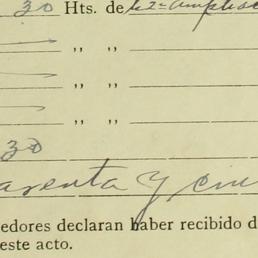 30 Hts. de
„ „
„ „
„ „
30
arenta y cin
edores declaran haber recibido d
este acto.